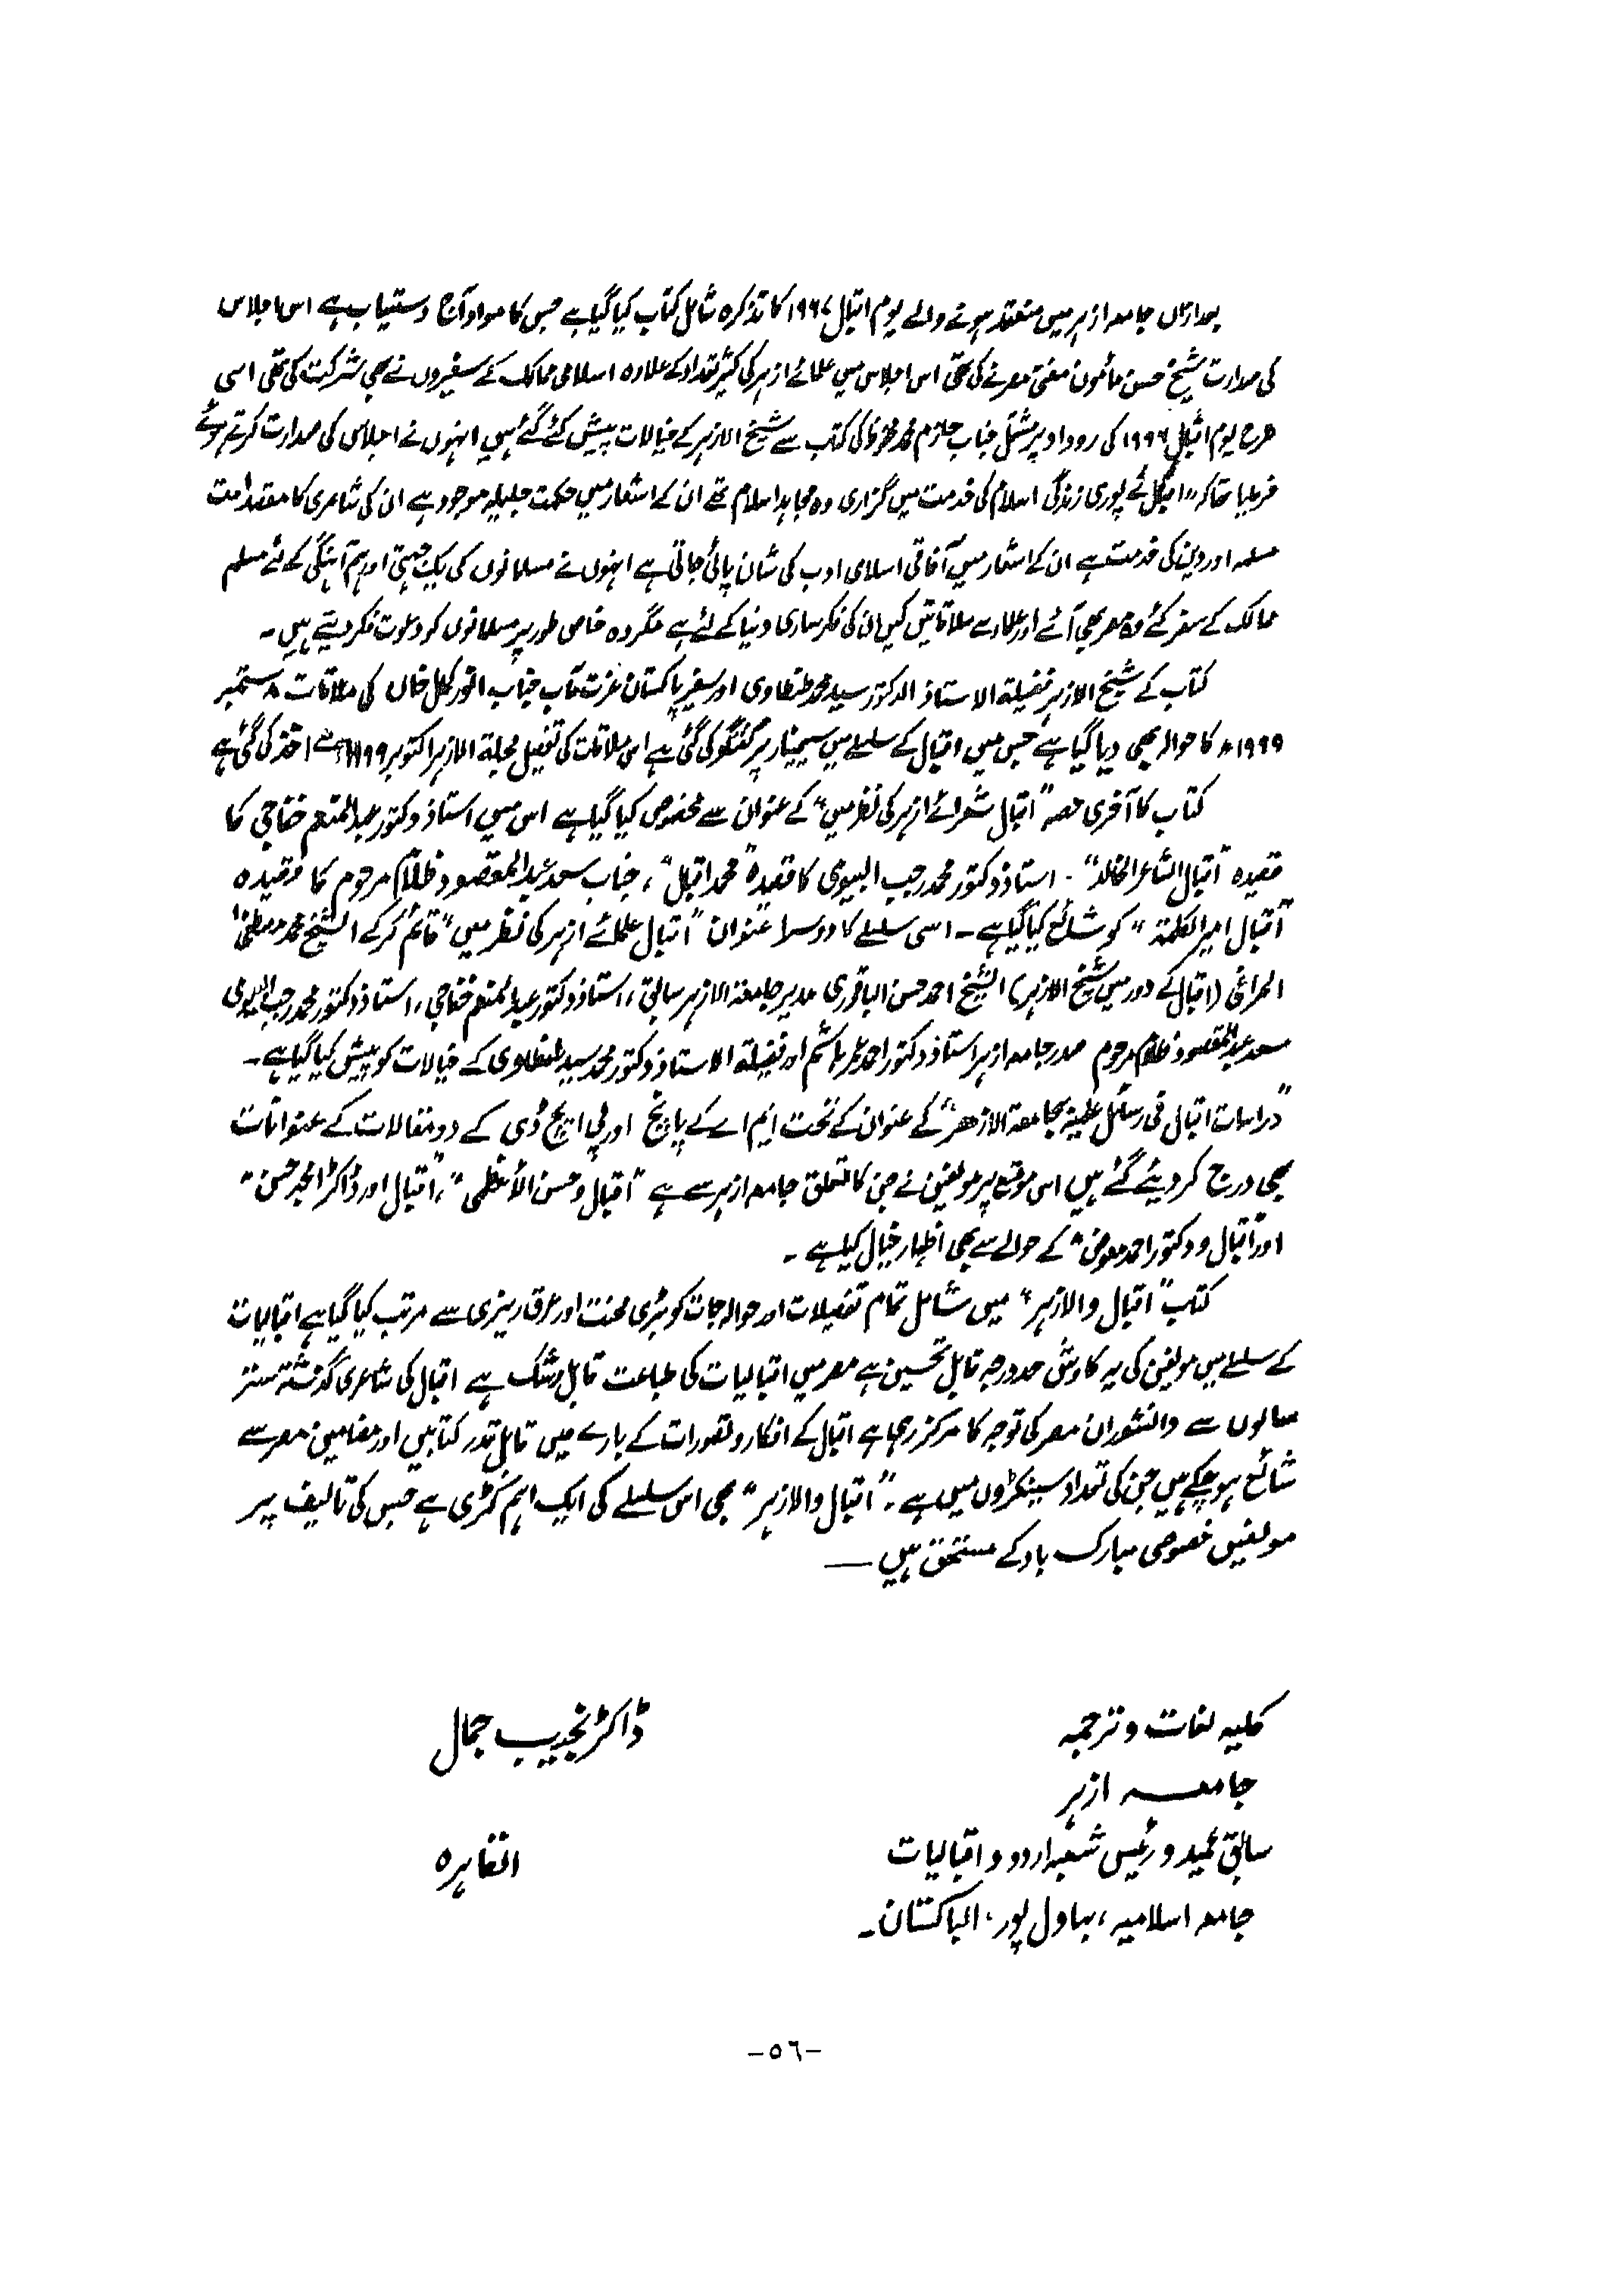 بعدازاں جامعہ ازہر میں منعقد ہونے والے یوم اقبال ۱۹۶۷ کا تذکرہ شامل کتاب کیا گیا ہے جس کا مواد آج دستیاب ہے اس اجلاس
کی صدارت شیخ حسن مأمون مفتی مصر نے کی تھی اس اجلاس میں علمائے ازہر کی کثیر تعداد کے علاوہ اسلامی ممالک کے سفیروں نے بھی شرکت کی تھی اسی
طرح یوم اقبال ۱۹۹۶ کی روداد پر مشتمل جناب حازم محمد محفوظ کی کتاب سے شیخ الازہر کے خیالات پیش کئے گئے ہیں انہوں نے اجلاس کی صدارت کرتے ہوئے
فرمایا تھا کہ "اقبال نے پوری زندگی اسلام کی خدمت میں گزاری وہ مجاہد اسلام تھے ان کے اشعار میں حکمت جلیلہ موجود ہے ان کی شاعری کا مقصد امت
مسلمہ اور دین کی خدمت ہے ان کے اشعار میں آفاقی اسلامی ادب کی شان پائی جاتی ہے انہوں نے مسلمانوں کی یک جہتی اور ہم آہنگی کے لئے مسلم
ممالک کے سفر کئے وہ مصر بھی آئے اور علماء سے ملاقاتیں کیں ان کی فکر ساری دنیا کے لئے ہے مگر وہ خاص طور پر مسلمانوں کو دعوت فکر دیتے ہیں ۔
کتاب کے شیخ الازہر فضیلة الاستاذ الدکتور سید محمد طنطاوی اور سفیر پاکستان عزت مآب جناب انور کمال خاں کی ملاقات ۸ ستمبر
۱۹۹۹ء کا حوالہ بھی دیا گیا ہے جس میں اقبال کے سلسلے میں سیمینار پر گفتگو کی گئی ہے اس ملاقات کی تفصیل مجلة الازہر اکتوبر ۱۹۹۹ء سے اخذ کی گئی ہے
کتاب کا آخری حصہ "اقبال شعرائے ازہر کی نظر میں" کے عنوان سے مخصوص کیا گیا ہے اس میں استاذ دکتور عبدالمنعم خفاجی کا
قصیدہ "اقبال الشاعر الخالد" ۔ استاذ دکتور محمد رجب البیومی کا قصیدہ "محمد اقبال"، جناب سعد عبدالمقصود ظلام مرحوم کا قصیدہ
"اقبال امیر الکلمة" کو شائع کیا گیا ہے ۔ اسی سلسلے کا دوسرا عنوان "اقبال علمائے ازہر کی نظر میں" قائم کر کے الشیخ محمد مصطفیٰ
المراغی (اقبال کے دور میں شیخ الازہر) الشیخ احمد حسن الباقوری مدیر جامعة الازہر سابق، استاذ دکتور عبدالمنعم خفاجی، استاذ دکتور محمد رجب البیومی
سعد عبدالمقصود ظلام مرحوم صدر جامعہ ازہر استاذ دکتور احمد عمر ہاشم اور فضیلة الاستاذ دکتور محمد سید طنطاوی کے خیالات کو پیش کیا گیا ہے ۔
"دراسات اقبال فی رسائل علمیة بجامعة الازھر" کے عنوان کے تحت ایم اے کے پانچ اور پی ایچ ڈی کے دو مقالات کے عنوانات
بھی درج کر دیئے گئے ہیں اس موقع پر مولفین نے جن کا تعلق جامعہ ازہر سے ہے "اقبال وحسن الأعظمی"، "اقبال اور ڈاکٹر امجد حسن"
اور "اقبال و دکتور احمد معوض" کے حوالے سے بھی اظہار خیال کیا ہے ۔
کتاب "اقبال والازہر" میں شامل تمام تفصیلات اور حوالہ جات کو بڑی محنت اور عرق ریزی سے مرتب کیا گیا ہے اقبالیات
کے سلسلے میں مولفین کی یہ کاوش حد درجہ قابل تحسین ہے مصر میں اقبالیات کی طباعت قابل رشک ہے اقبال کی شاعری گذشتہ ستر
سالوں سے دانشوران مصر کی توجہ کا مرکز رہی ہے اقبال کے افکار و تصورات کے بارے میں قابل قدر کتابیں اور مضامین مصر سے
شائع ہو چکے ہیں جن کی تعداد سینکڑوں میں ہے ۔ "اقبال والازہر" بھی اس سلسلے کی ایک اہم کڑی ہے جس کی تالیف پر
مولفین خصوصی مبارک باد کے مستحق ہیں ــــ
کلیہ لغات و ترجمہ
ڈاکٹر نجیب جمال
جامعہ ازہر
سابق عمید و رئیس شعبہ اردو و اقبالیات
القاہرہ
جامعہ اسلامیہ، بہاول پور، الباکستان ۔
-٥٦-